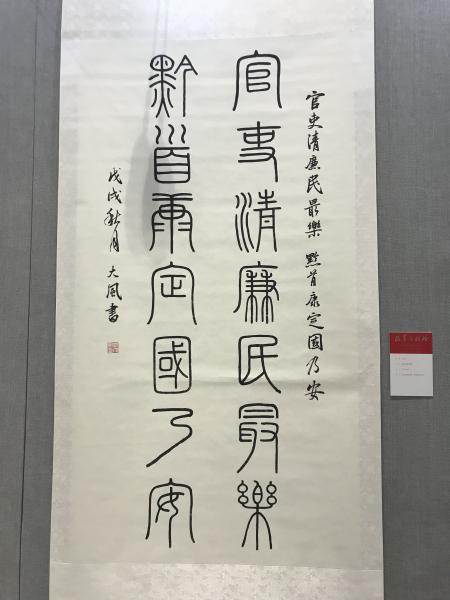 官吏清廉民最樂 黔首康定國乃安
官吏清廉民最樂
黔首康定國乃安
戊戌秋月 大風書